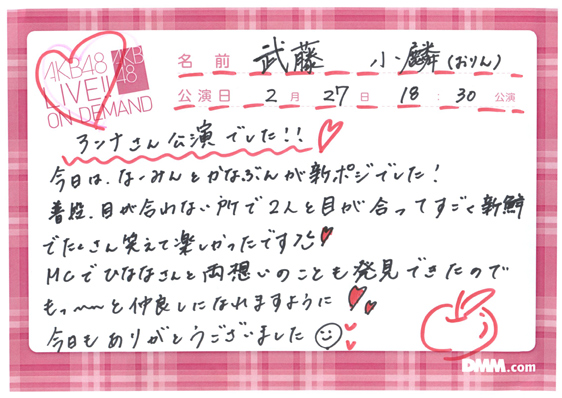 AKB48
LIVE!!
ON DEMAND
AKB
48
名前 武藤 小麟(おりん)
公演日 2月27日 18:30公演
ランナさん公演でした!!
今日は、なーみんとかなぶんが新ポジでした!
普段、目が合わない所で2人と目が合ってすごく新鮮
でたくさん笑えて楽しかったです
MCでひななさんと両想いのことも発見できたので
もっ〜〜と仲良しになれますように
今日もありがとうございました
DMM.com